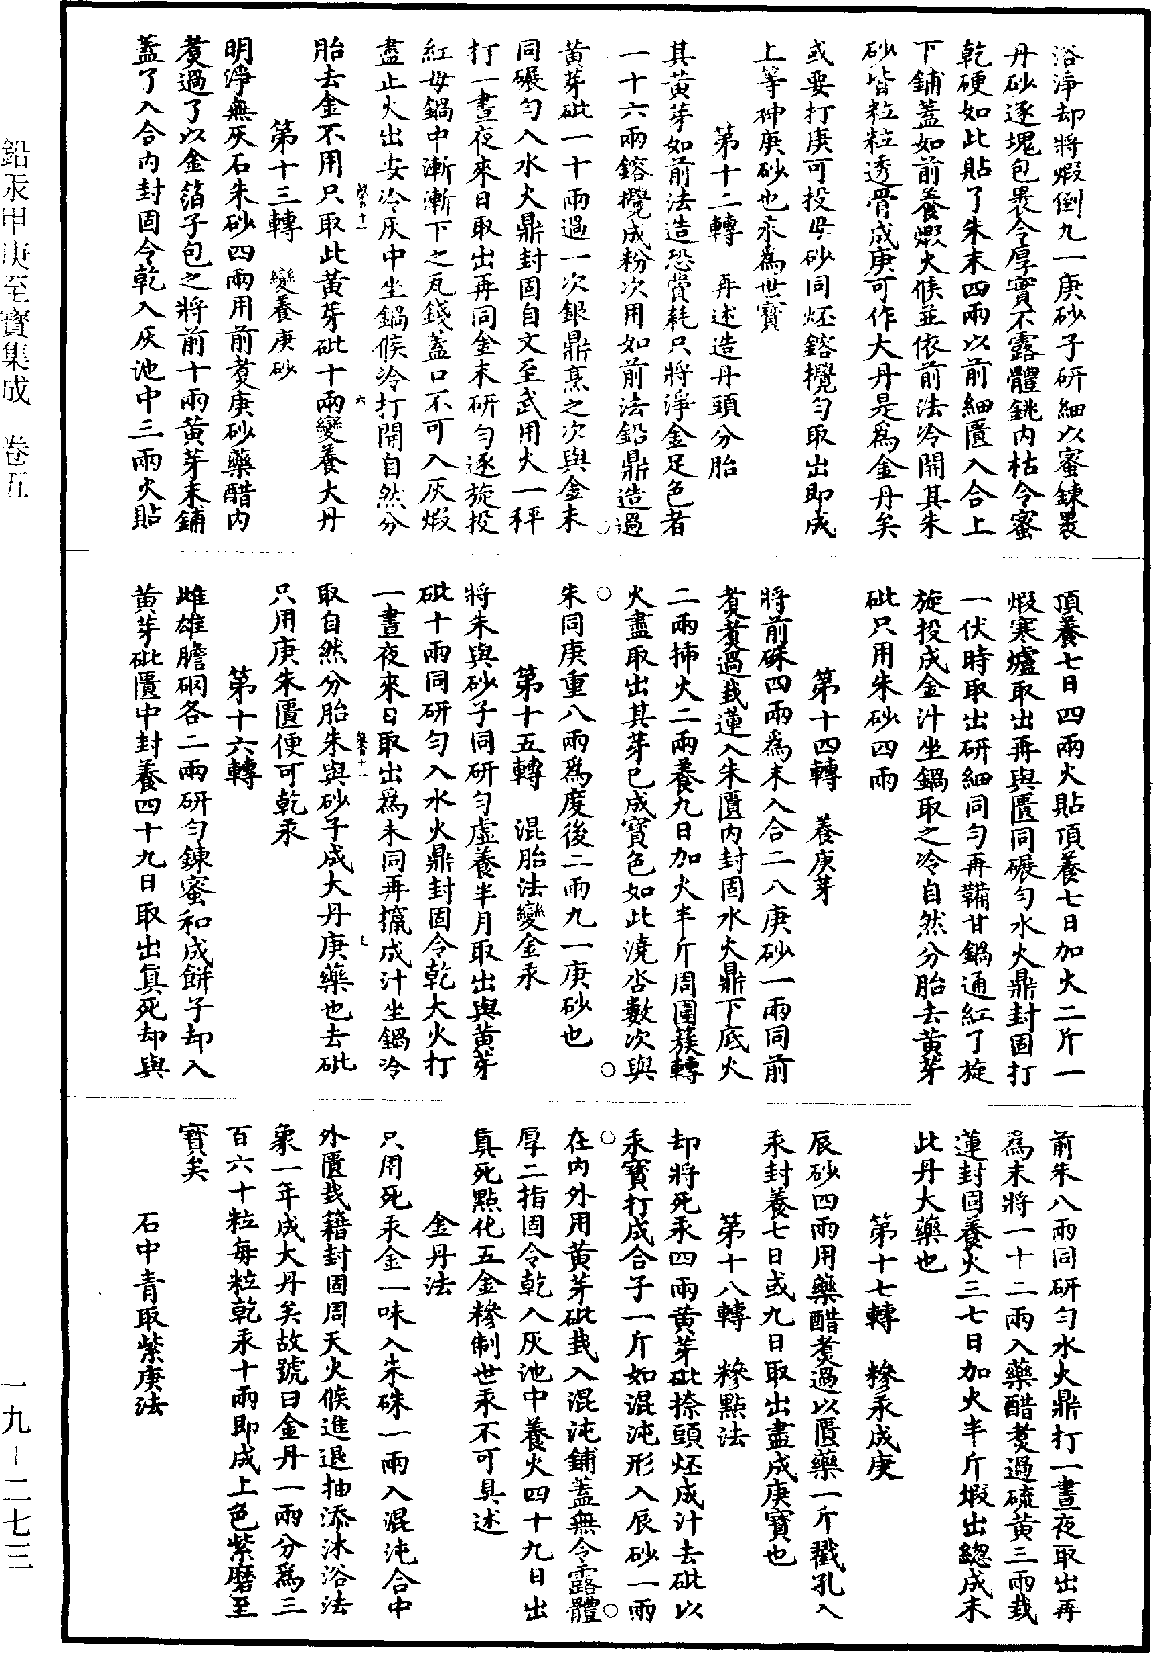 浴淨却將煆倒九一庚砂子研細以蜜鍊褁
丹砂逐塊包褁令厚實不露體銚内枯令蜜
乾硬如此貼了朱末四兩以前細匱入合上
下鋪蓋如前養煆火候並依前法冷開其朱
砂皆粒粒透骨成庚可作大丹是爲金丹矣
或要打庚可投母砂同坯鎔攪勻取出即成
上等神庚砂也永爲世寶
第十二轉　再述造丹頭分胎
其黃芽如前法造恐費耗只將淨金足色者
一十六兩鎔攪成粉次用如前法鉛鼎造過
黃芽砒一十兩過一次銀鼎烹之次與金末
同碾勻入水火鼎封固自文至武用火一秤
打一晝夜來日取出再同金末研勻逐旋投
紅母鍋中漸漸下之瓦錢蓋口不可入灰煆
盡止火出安冷灰中坐鍋候冷打開自然分
胎去金不用只取此黃芽砒十兩變養大丹
第十三轉　變養庚砂
明淨無灰石朱砂四兩用前煑庚砂藥醋内
煑過了以金箔子包之將前十兩黃芽末鋪
蓋了入合内封固令乾入灰池中三兩火貼
頂養七日四兩火貼頂養七日加火二斤一
煆寒爐取出再與匱同碾勻水火鼎封固打
一伏時取出研細同勻再鞴甘鍋通紅了旋
旋投成金汁坐鍋取之冷自然分胎去黃芽
砒只用朱砂四兩
第十四轉　養庚芽
將前硃四兩爲末入合二八庚砂一兩同前
煑煑過栽蓮入朱匱内封固水火鼎下底火
二兩揷火二兩養九日加火半斤周圍簇轉
火盡取出其芽已成寶色如此澆沓數次與
朱同庚重八兩爲度後二兩九一庚砂也
第十五轉　混胎法變金汞
將朱與砂子同研勻虛養半月取出與黃芽
砒十兩同研勻入水火鼎封固令乾大火打
一晝夜來日取出爲末同再攛成汁坐鍋冷
取自然分胎朱與砂子成大丹庚藥也去砒
只用庚朱匱便可乾汞
第十六轉
雌雄膽硇各二兩研勻鍊蜜和成餅子却入
黃芽砒匱中封養四十九日取出眞死却與
前朱八兩同研勻水火鼎打一晝夜取出再
爲末將一十二兩入藥醋煑過硫黃三兩栽
蓮封固養火三七日加火半斤煆出總成末
此丹大藥也
第十七轉　糝汞成庚
辰砂四兩用藥醋煑過以匱藥一斤戳孔入
汞封養七日或九日取出盡成庚寶也
第十八轉　糝點法
却將死汞四兩黃芽砒捺頭坯成汁去砒以
汞寶打成合子一斤如混沌形入辰砂一兩
在内外用黃芽砒栽入混沌鋪蓋無令露體
厚二指固令乾入灰池中養火四十九日出
眞死點化五金糝制世汞不可具述
金丹法
只用死汞金一味入朱硃一兩入混沌合中
外匱栽籍封固周天火候進退抽添沐浴法
象一年成大丹矣故號曰金丹一兩分爲三
百六十粒每粒乾汞十兩即成上色紫磨至
寶矣
石中青取紫庚法
鉛汞甲庚至寶集成　卷五
一九－二七三